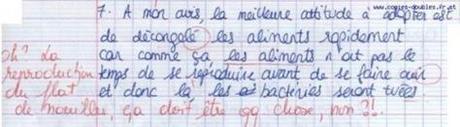 www.copies-doubles.fr.st
7. A mon avis, la meilleure attitude à adopter est
de décongelé les aliments rapidement
car comme ça les aliments n'ont pas le
temps de se reproduire avant de se faire cuir
et donc là les bactéries seront tuées
oh? La
reproduction
du plat
de nouilles, ça doit être qq chose, non ?!.